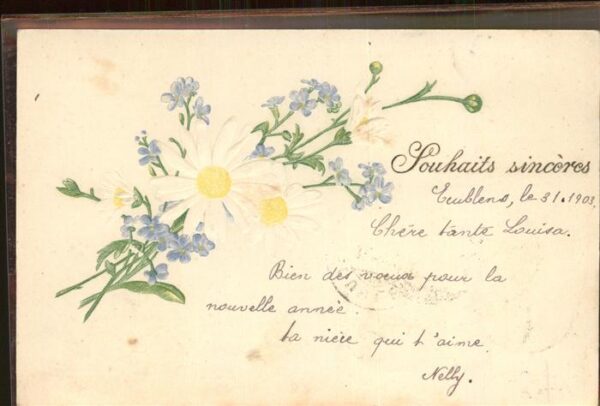 Souhaits sincères
Ecublens, le 31. 1903,
Chère tante Louisa.
Bien des voeux pour la
nouvelle année
ta nièce qui t'aime.
Nelly.